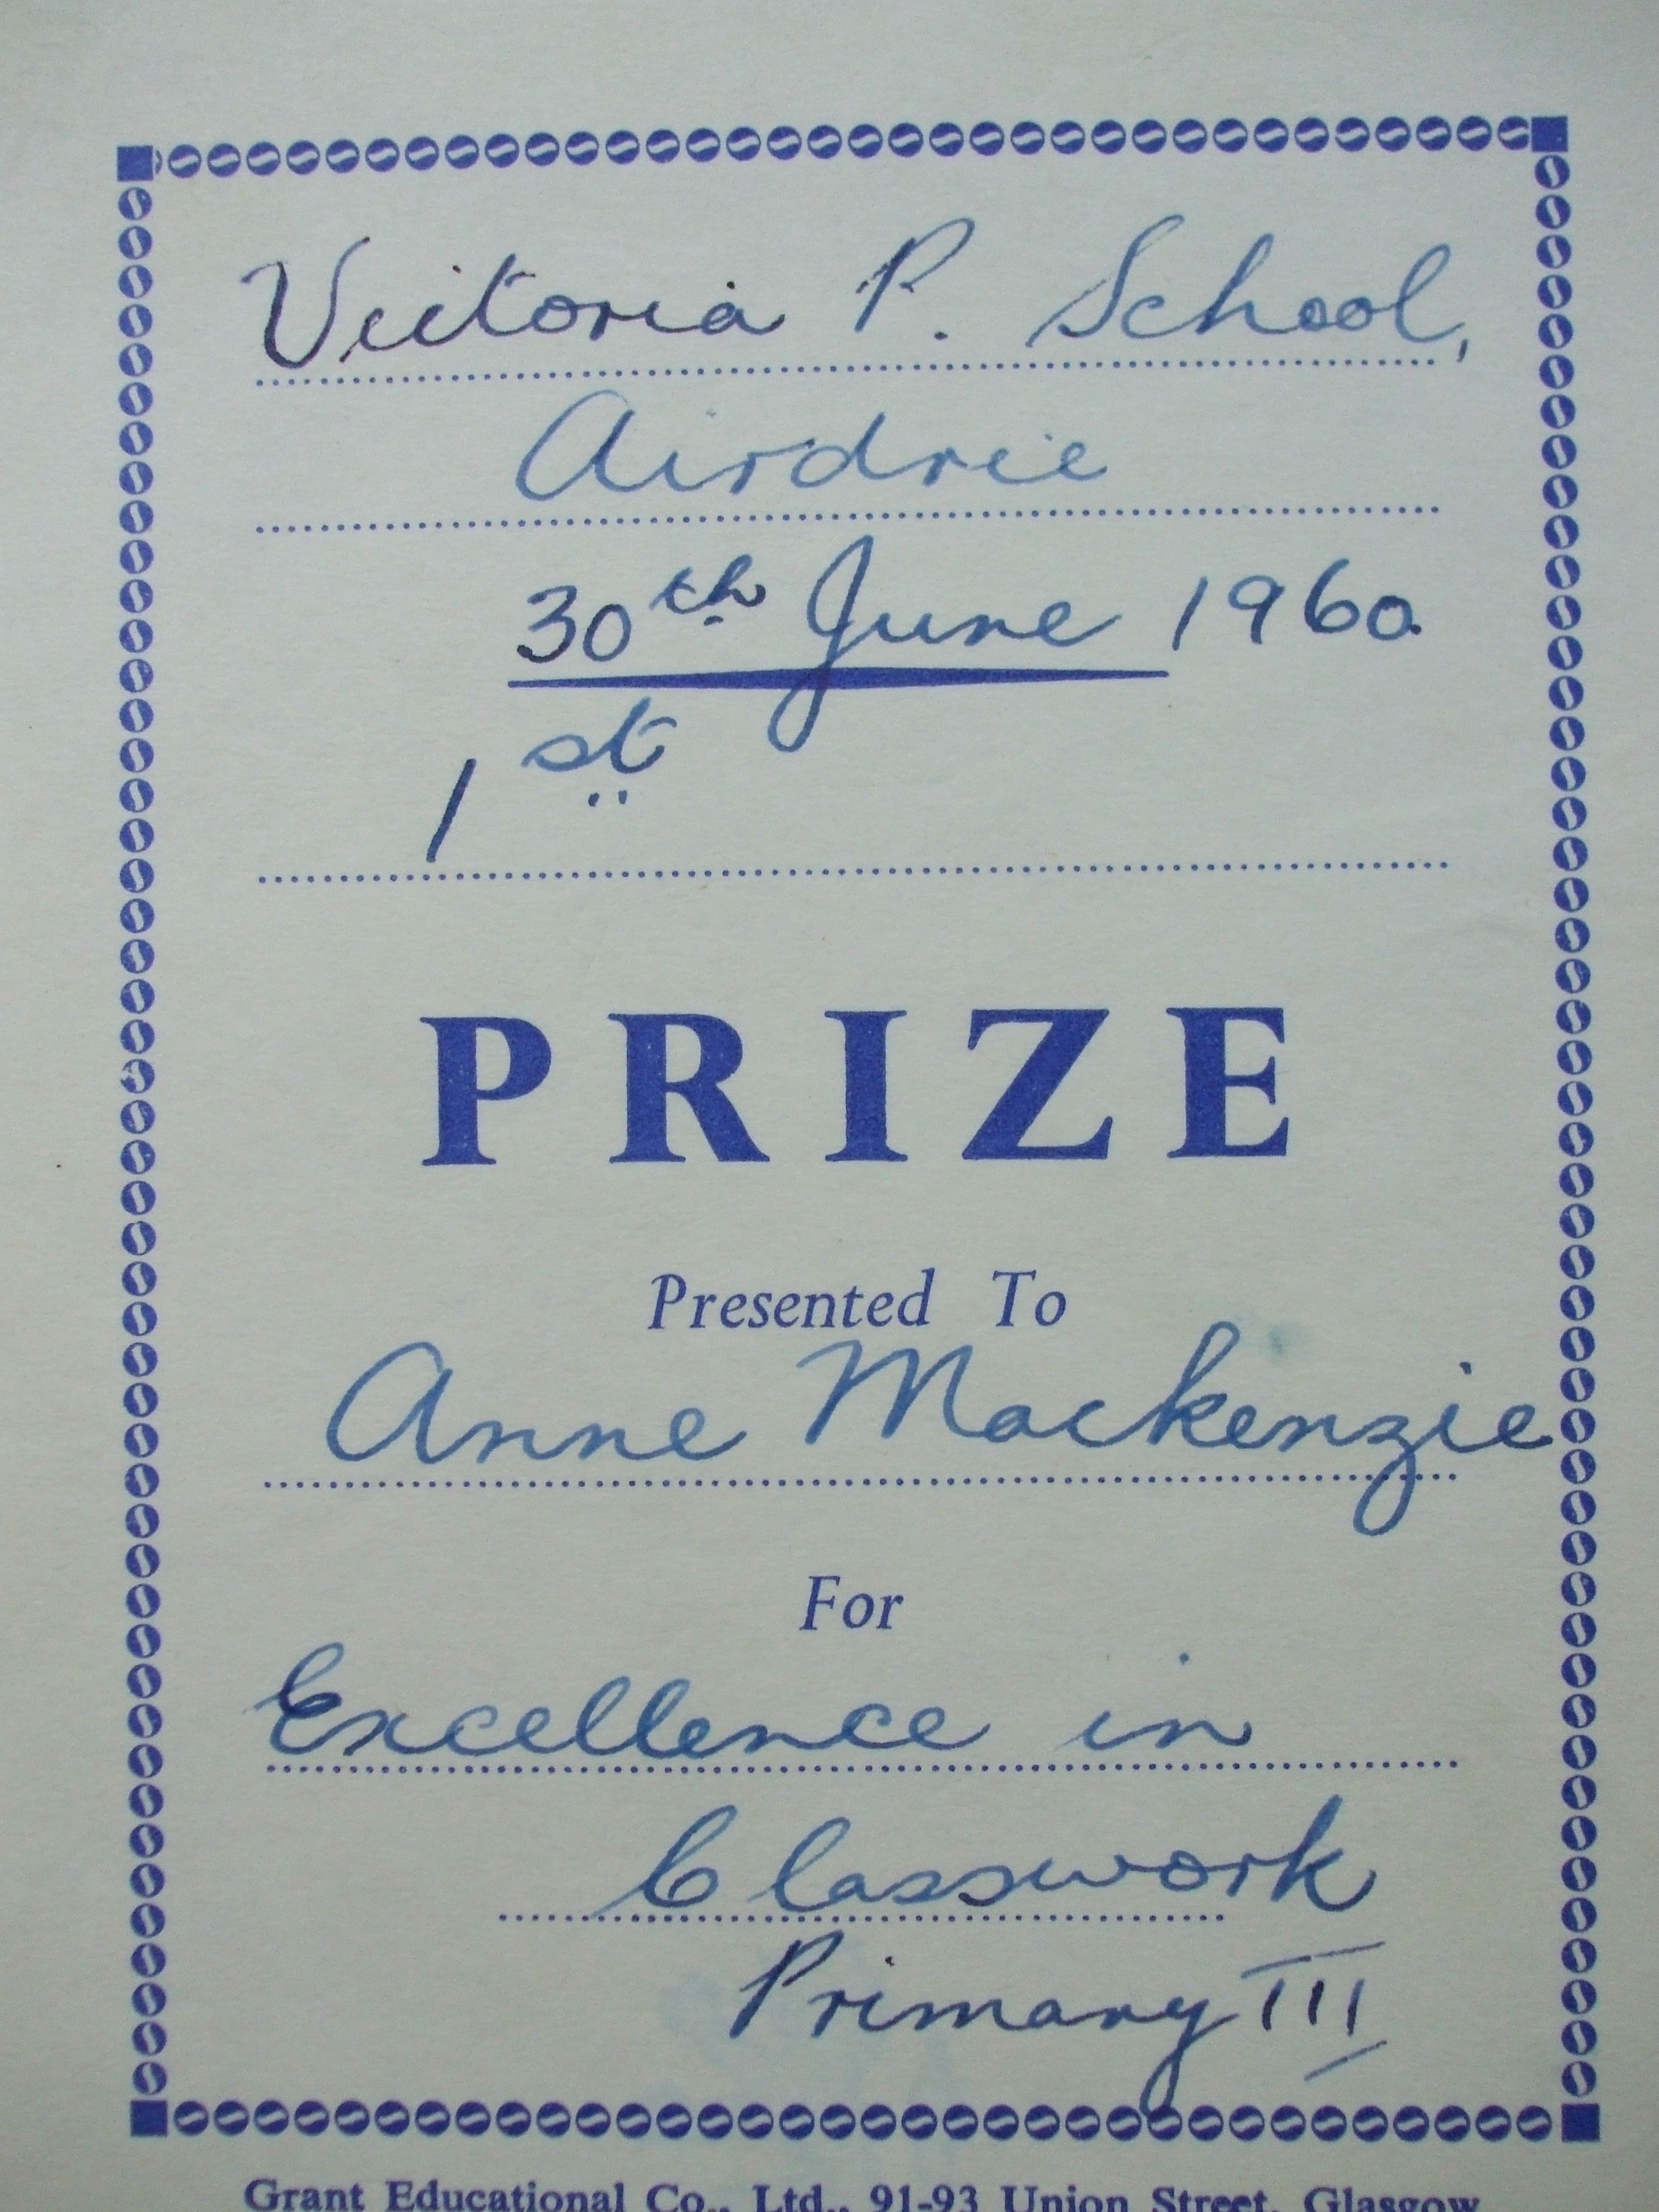 Victoria P. School,
Airdrie
30th June 1960
1st
PRIZE
Presented To
Anne Mackenzie
For
Excellence in
Classwork
Primary III
Grant Educational Co., Ltd., 91-93 Union Street, Glasgow